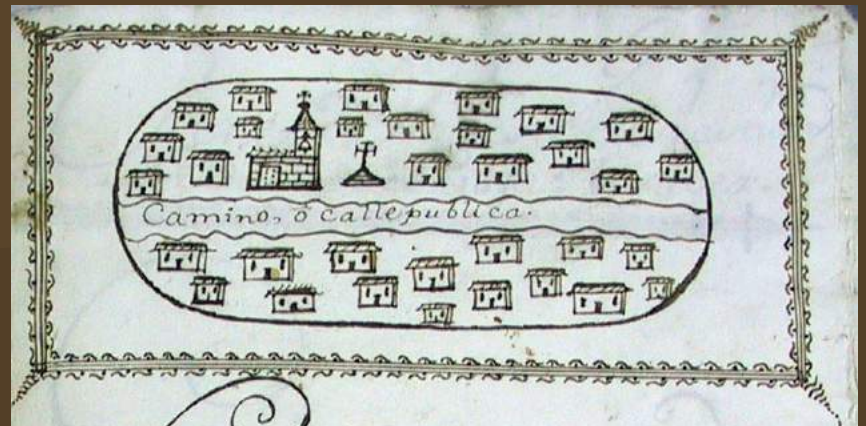 Camino, ó calle publica.